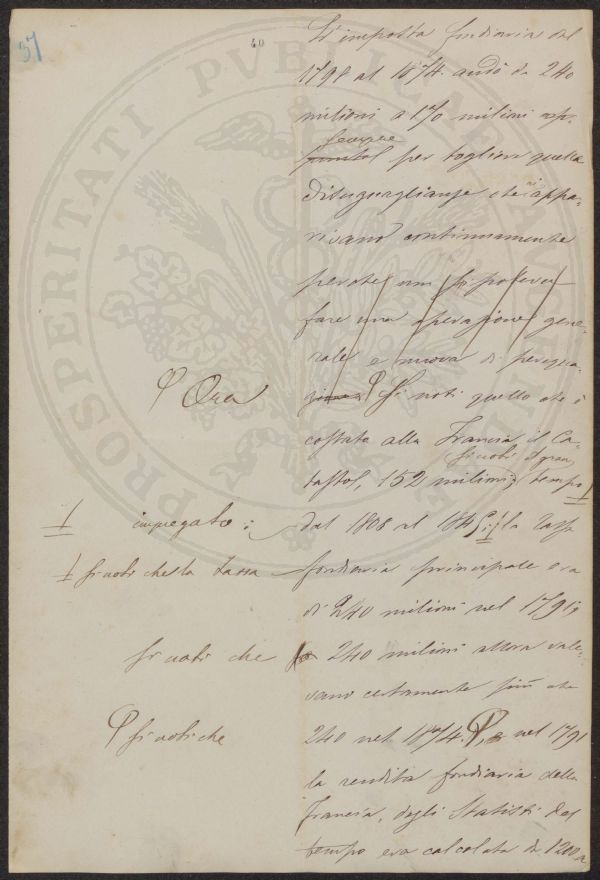 57
40
PROSPERITATI PVBLICAE
L'imposta fondiaria dal
1798 al 1874. andò da 240
milioni a 170 milioni
sempre
per togliere quella
disuguaglianze che appa-
rivano continuamente
perchè non si poteva
fare una operazione gene-
rale e nuova di perequa-
Ora
Si noti quello che è
costato alla Francia il Ca-
si noti il gran
tasto, 152 milioni, tempo
impiegato:
dal 1808 al 1845; la tassa
si noti che la tassa
fondiaria principale era
di 240 milioni nel 1791,
si noti che
240 milioni allora vale-
vano certamente più che
si noti che
240 nel 1874. nel 1791
la rendita fondiaria della
Francia, dagli Statisti del
tempo era calcolata di 1200